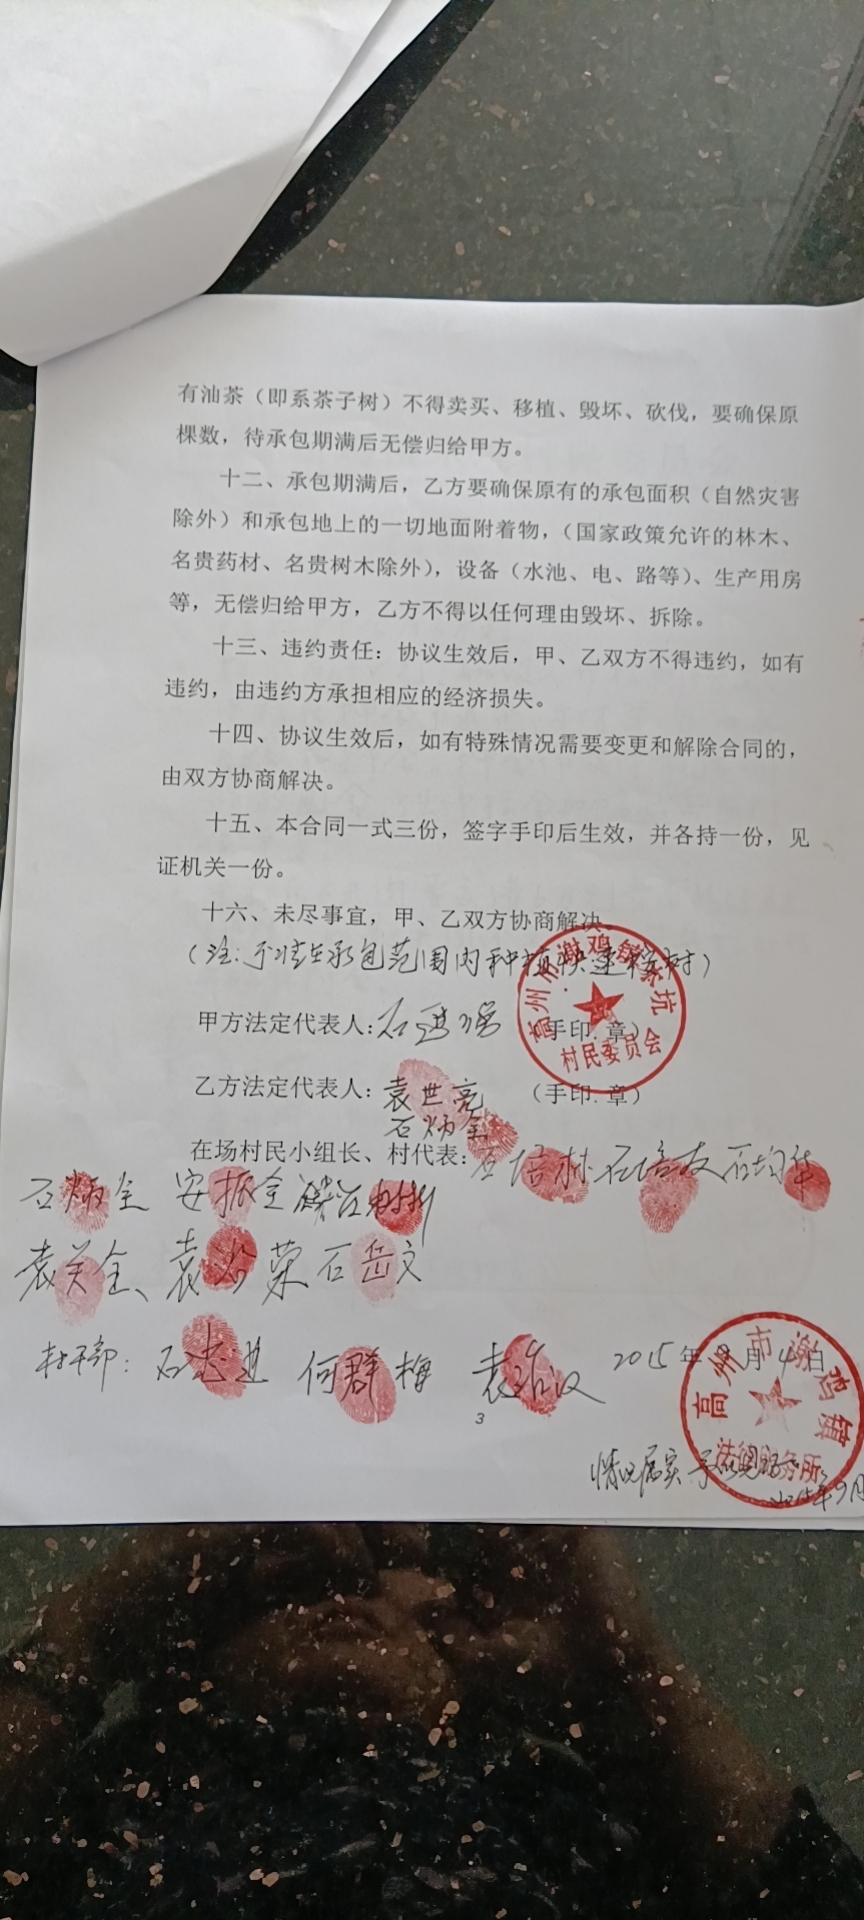 有油茶（即系茶子树）不得卖买、移植、毁坏、砍伐，要确保原
棵数，待承包期满后无偿归给甲方。
十二、承包期满后，乙方要确保原有的承包面积（自然灾害
除外）和承包地上的一切地面附着物，（国家政策允许的林木、
名贵药材、名贵树木除外），设备（水池、电、路等）、生产用房
等，无偿归给甲方，乙方不得以任何理由毁坏、拆除。
十三、违约责任：协议生效后，甲、乙双方不得违约，如有
违约，由违约方承担相应的经济损失。
十四、协议生效后，如有特殊情况需要变更和解除合同的，
由双方协商解决。
十五、本合同一式三份，签字手印后生效，并各持一份，见
证机关一份。
十六、未尽事宜，甲、乙双方协商解决
（注：不准在承包范围内种植快速桉树）
高州市谢鸡镇茶坑
村民委员会
甲方法定代表人：石（手印.章）
乙方法定代表人：袁世亮（手印.章）
石炳全
在场村民小组长、村代表：石培林 石培友 石均华
石炳全 安振全
袁关全、袁 荣 石岳文
村干部：石忠进 何群梅 袁 2015年9月4日
3
高州市谢鸡镇
法律服务所
情况属实
2015年9月